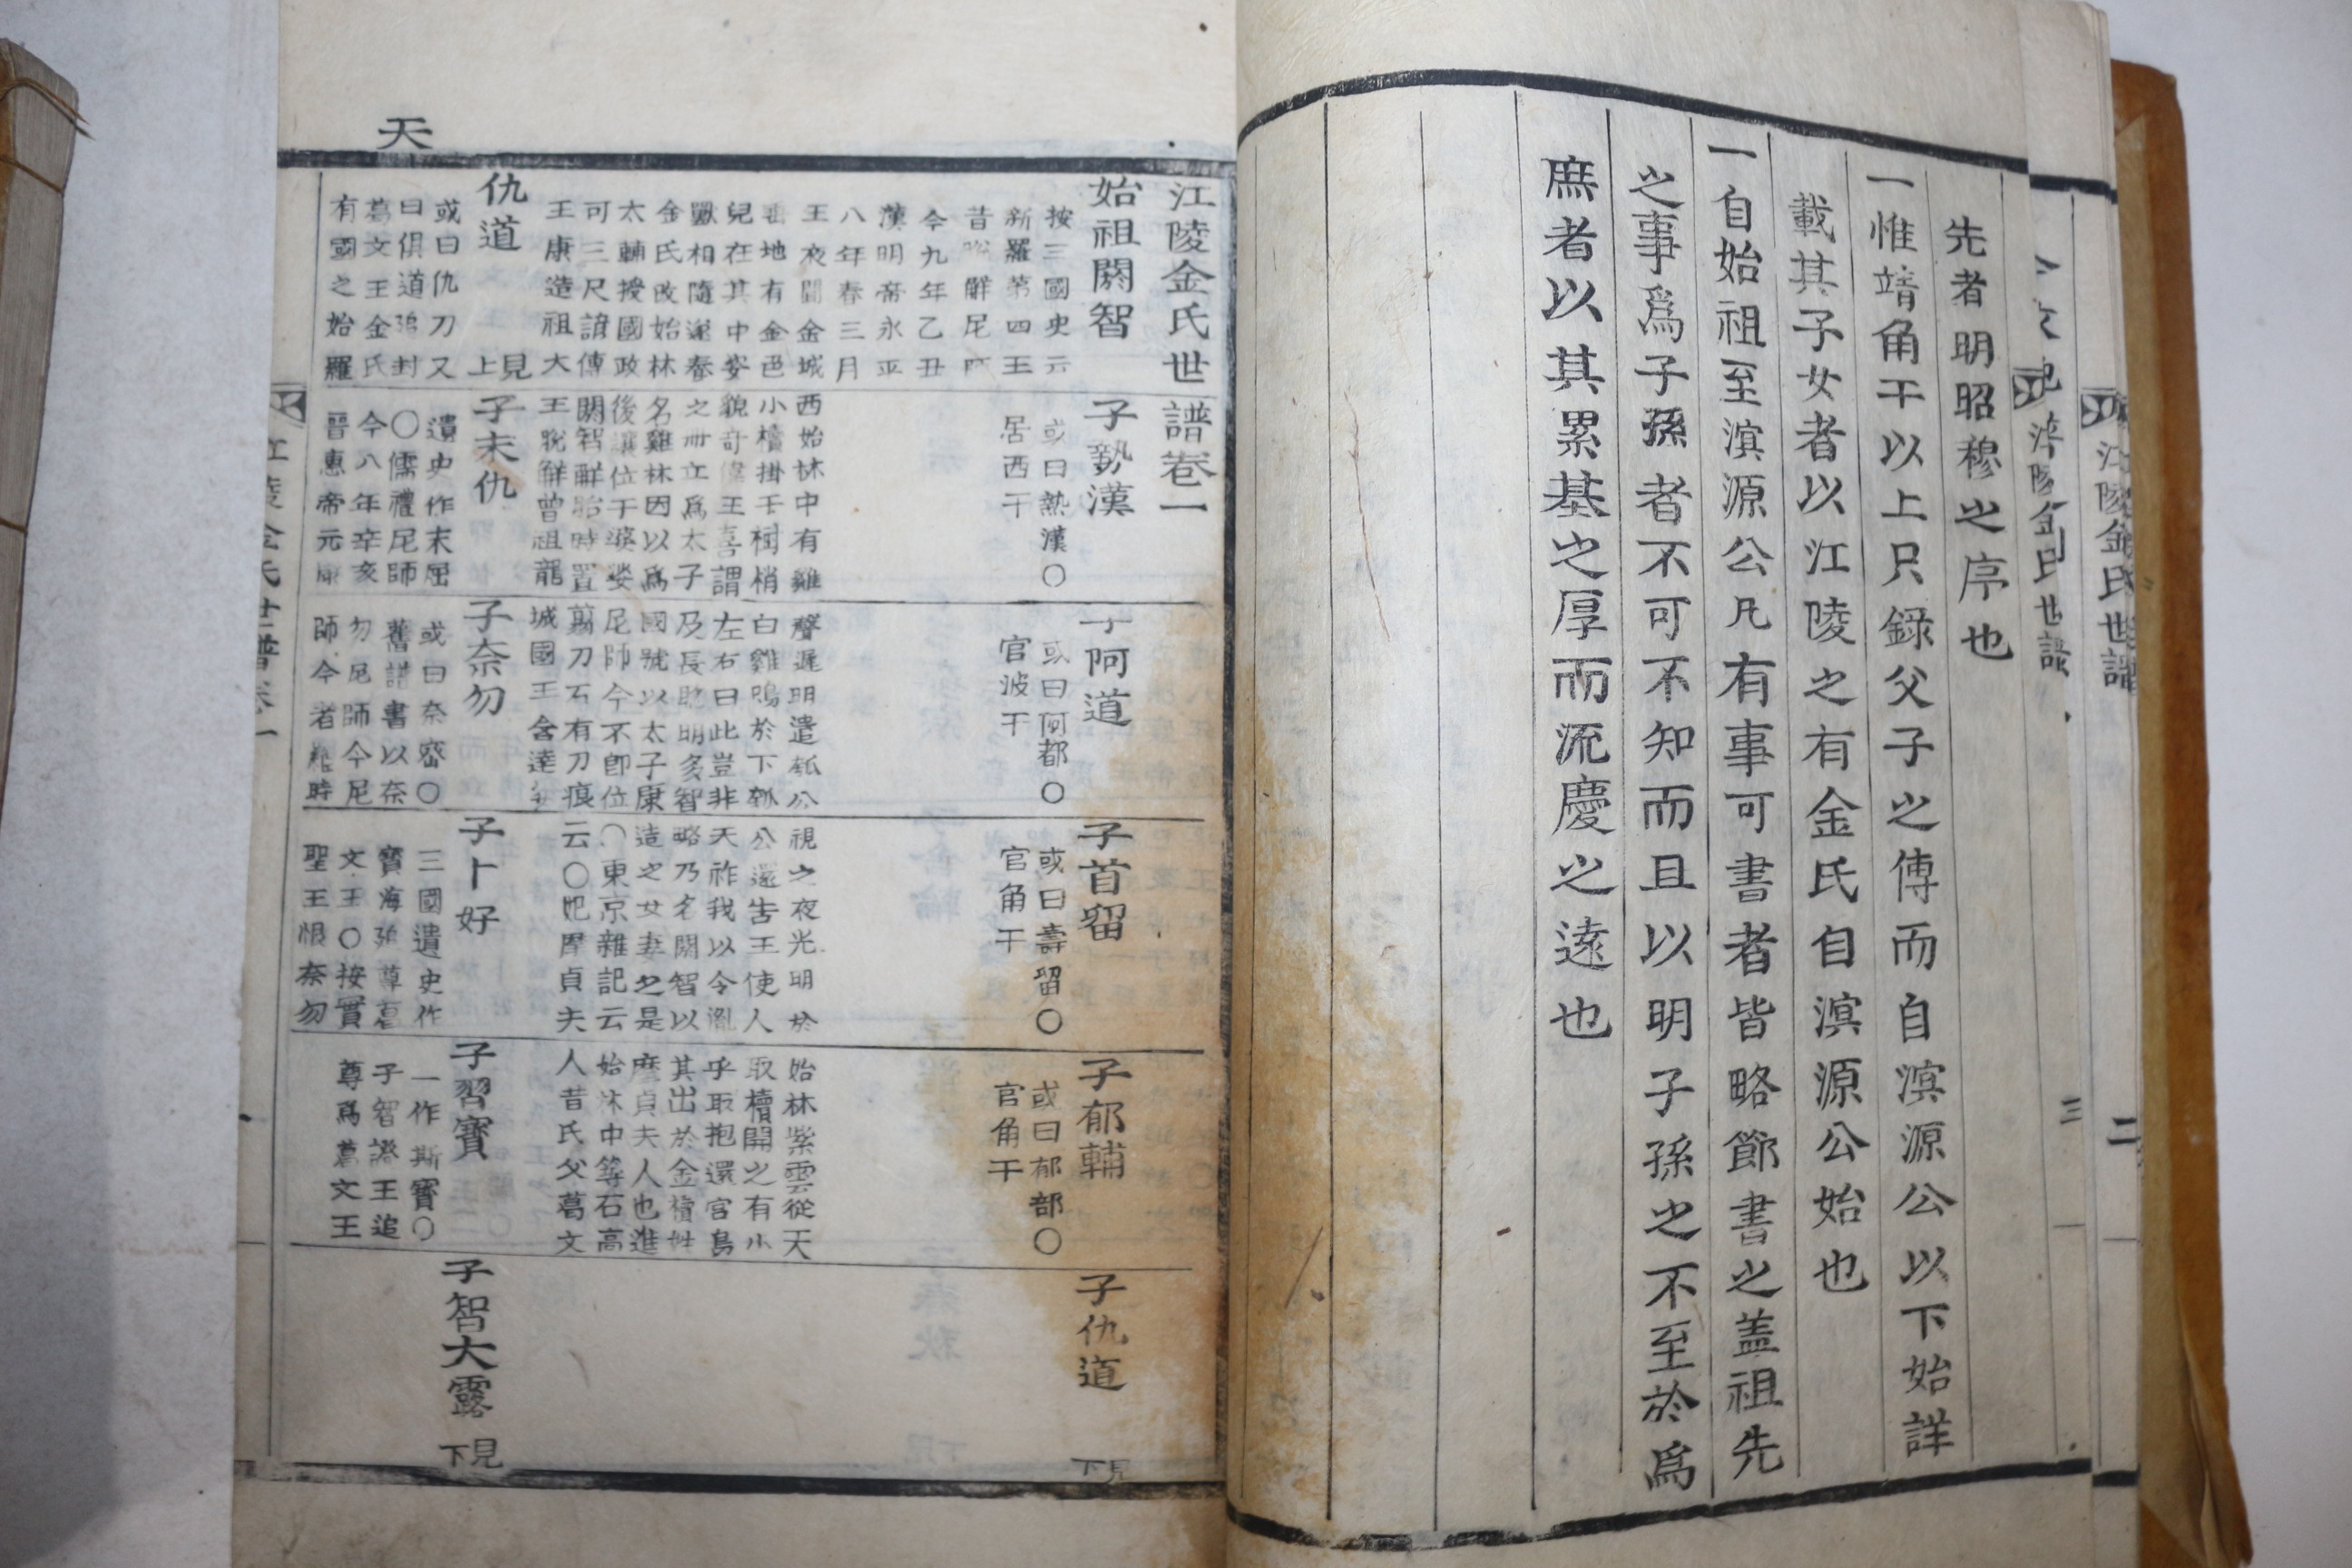 江陵金氏世譜
二
江陵金氏世譜
三
先者明昭穆之序也
一惟靖角干以上只錄父子之傳而自溟源公以下始詳
載其子女者以江陵之有金氏自溟源公始也
一自始祖至溟源公凡有事可書者皆略節書之盖祖先
之事爲子孫者不可不知而且以明子孫之不至於爲
庶者以其累基之厚而流慶之遠也
天
江陵金氏世譜卷一
始祖閼智
按三國史元
新羅第四王
昔解尼
今九年乙丑
漢明帝永平
八年春三月
王夜聞金城
西始林中有雞
聲遲明遣瓠公
視之夜光明於
始林紫雲從天
垂地有金色
小櫝掛于樹梢
白雞鳴於下瓠
公還告王使人
取櫝開之有小
兒在其中姿
貌奇偉王喜謂
左右曰此豈非
天祚我以令胤
乎取抱還宮鳥
獸相隨遂養
之冊立爲太子
及長聰明多智
略乃名閼智以
其出於金櫝姓
金氏改始林
名雞林因以爲
國號以太子康
造之女妻之是
摩貞夫人也進
太輔授國政
後讓位于婆娑
尼師今不卽位
〇東京雜記云
始林中等石高
可三尺諺傳
閼智解胎時置
翦刀石有刀痕
云〇妃摩貞夫
人昔氏父葛文
王康造祖大
王脫解曾祖龍
城國王含達
子勢漢
或曰熱漢〇
居西干
子阿道
或曰阿都〇
官波干
子首留
或曰壽留〇
官角干
子郁輔
或曰郁部〇
官角干
子仇道
見下
仇道
見上
或曰仇刀又
曰俱道追封
葛文王金氏
有國之始羅
子末仇
遺史作末屈
〇儒禮尼師
今八年辛亥
晉惠帝元康
子奈勿
或曰奈密〇
舊譜書以奈
勿尼師今尼
師今者羅時
子卜好
三國遺史作
寶海追尊葛
文王〇按實
聖王恨奈勿
子習寶
一作斯寶〇
子智證王追
尊爲葛文王
子智大露
見下
江陵金氏世譜卷一